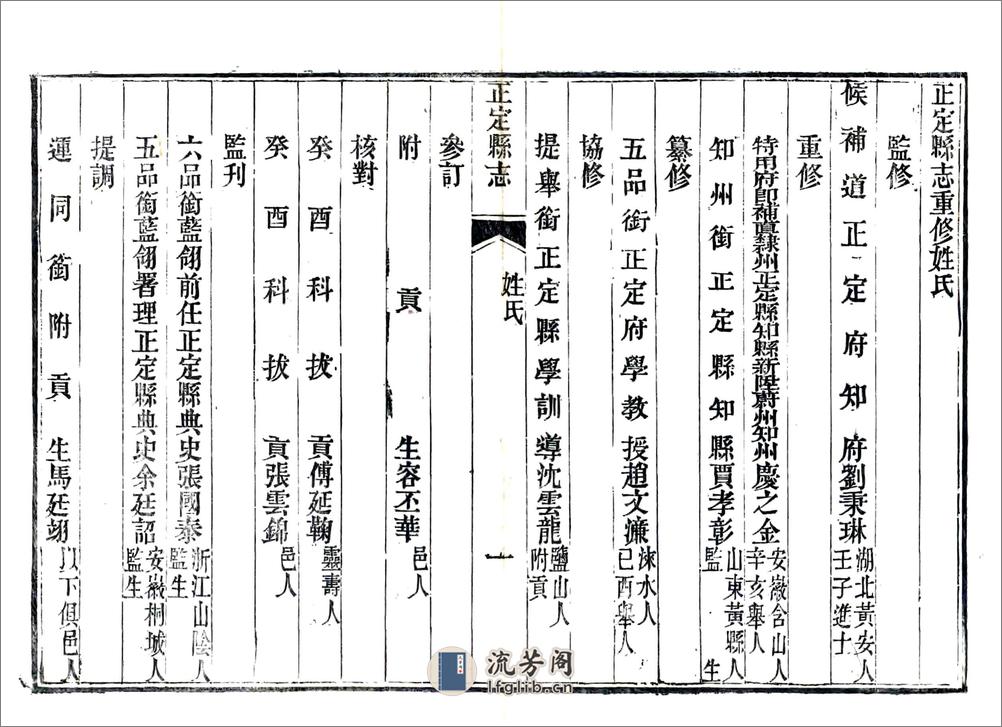 正定縣志重修姓氏
監修
候補道正定府知府劉秉琳湖北黃安人壬子進士
重修
特用府即補直隸州正定縣知縣新陞蔚州知州慶之金安徽含山人辛亥舉人
知州銜正定縣知縣賈孝彰山東黃縣人監生
纂修
五品銜正定府學教授趙文濂淶水人己酉舉人
協修
提舉銜正定縣學訓導沈雲龍鹽山人附貢
正定縣志 姓氏 一
參訂
附貢生容丕華邑人
核對
癸酉科拔貢傅延鞠靈壽人
癸酉科拔貢張雲錦邑人
監刊
六品銜藍翎前任正定縣典史張國泰浙江山陰人監生
五品銜藍翎署理正定縣典史余廷詔安徽桐城人監生
提調
運同銜附貢生馬廷翊以下俱邑人
流芳阁
lfglib.cn